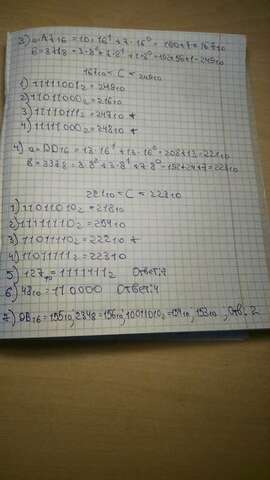 3) a=A7₁₆ = 10·16¹+7·16⁰=160+7=167₁₀
B=371₈=3·8²+7·8¹+1·8⁰=192+56+1=249₁₀
167₁₀ < C < 249₁₀
1) 11111001₂=249₁₀
2) 11011000₂=216₁₀
3) 11110111₂=247₁₀ *
4) 11111000₂=248₁₀ *
4) a=DD₁₆=13·16¹+13·16⁰=208+13=221₁₀
B=337₈=3·8²+3·8¹+7·8⁰=192+24+7=223₁₀
221₁₀ < C < 223₁₀
1) 11011010₂=218₁₀
2) 11111110₂=254₁₀
3) 11011110₂=222₁₀ *
4) 11011111₂=223₁₀
5) 127₁₀=1111111₂ Ответ:7
6) 48₁₀=110000 Ответ:4